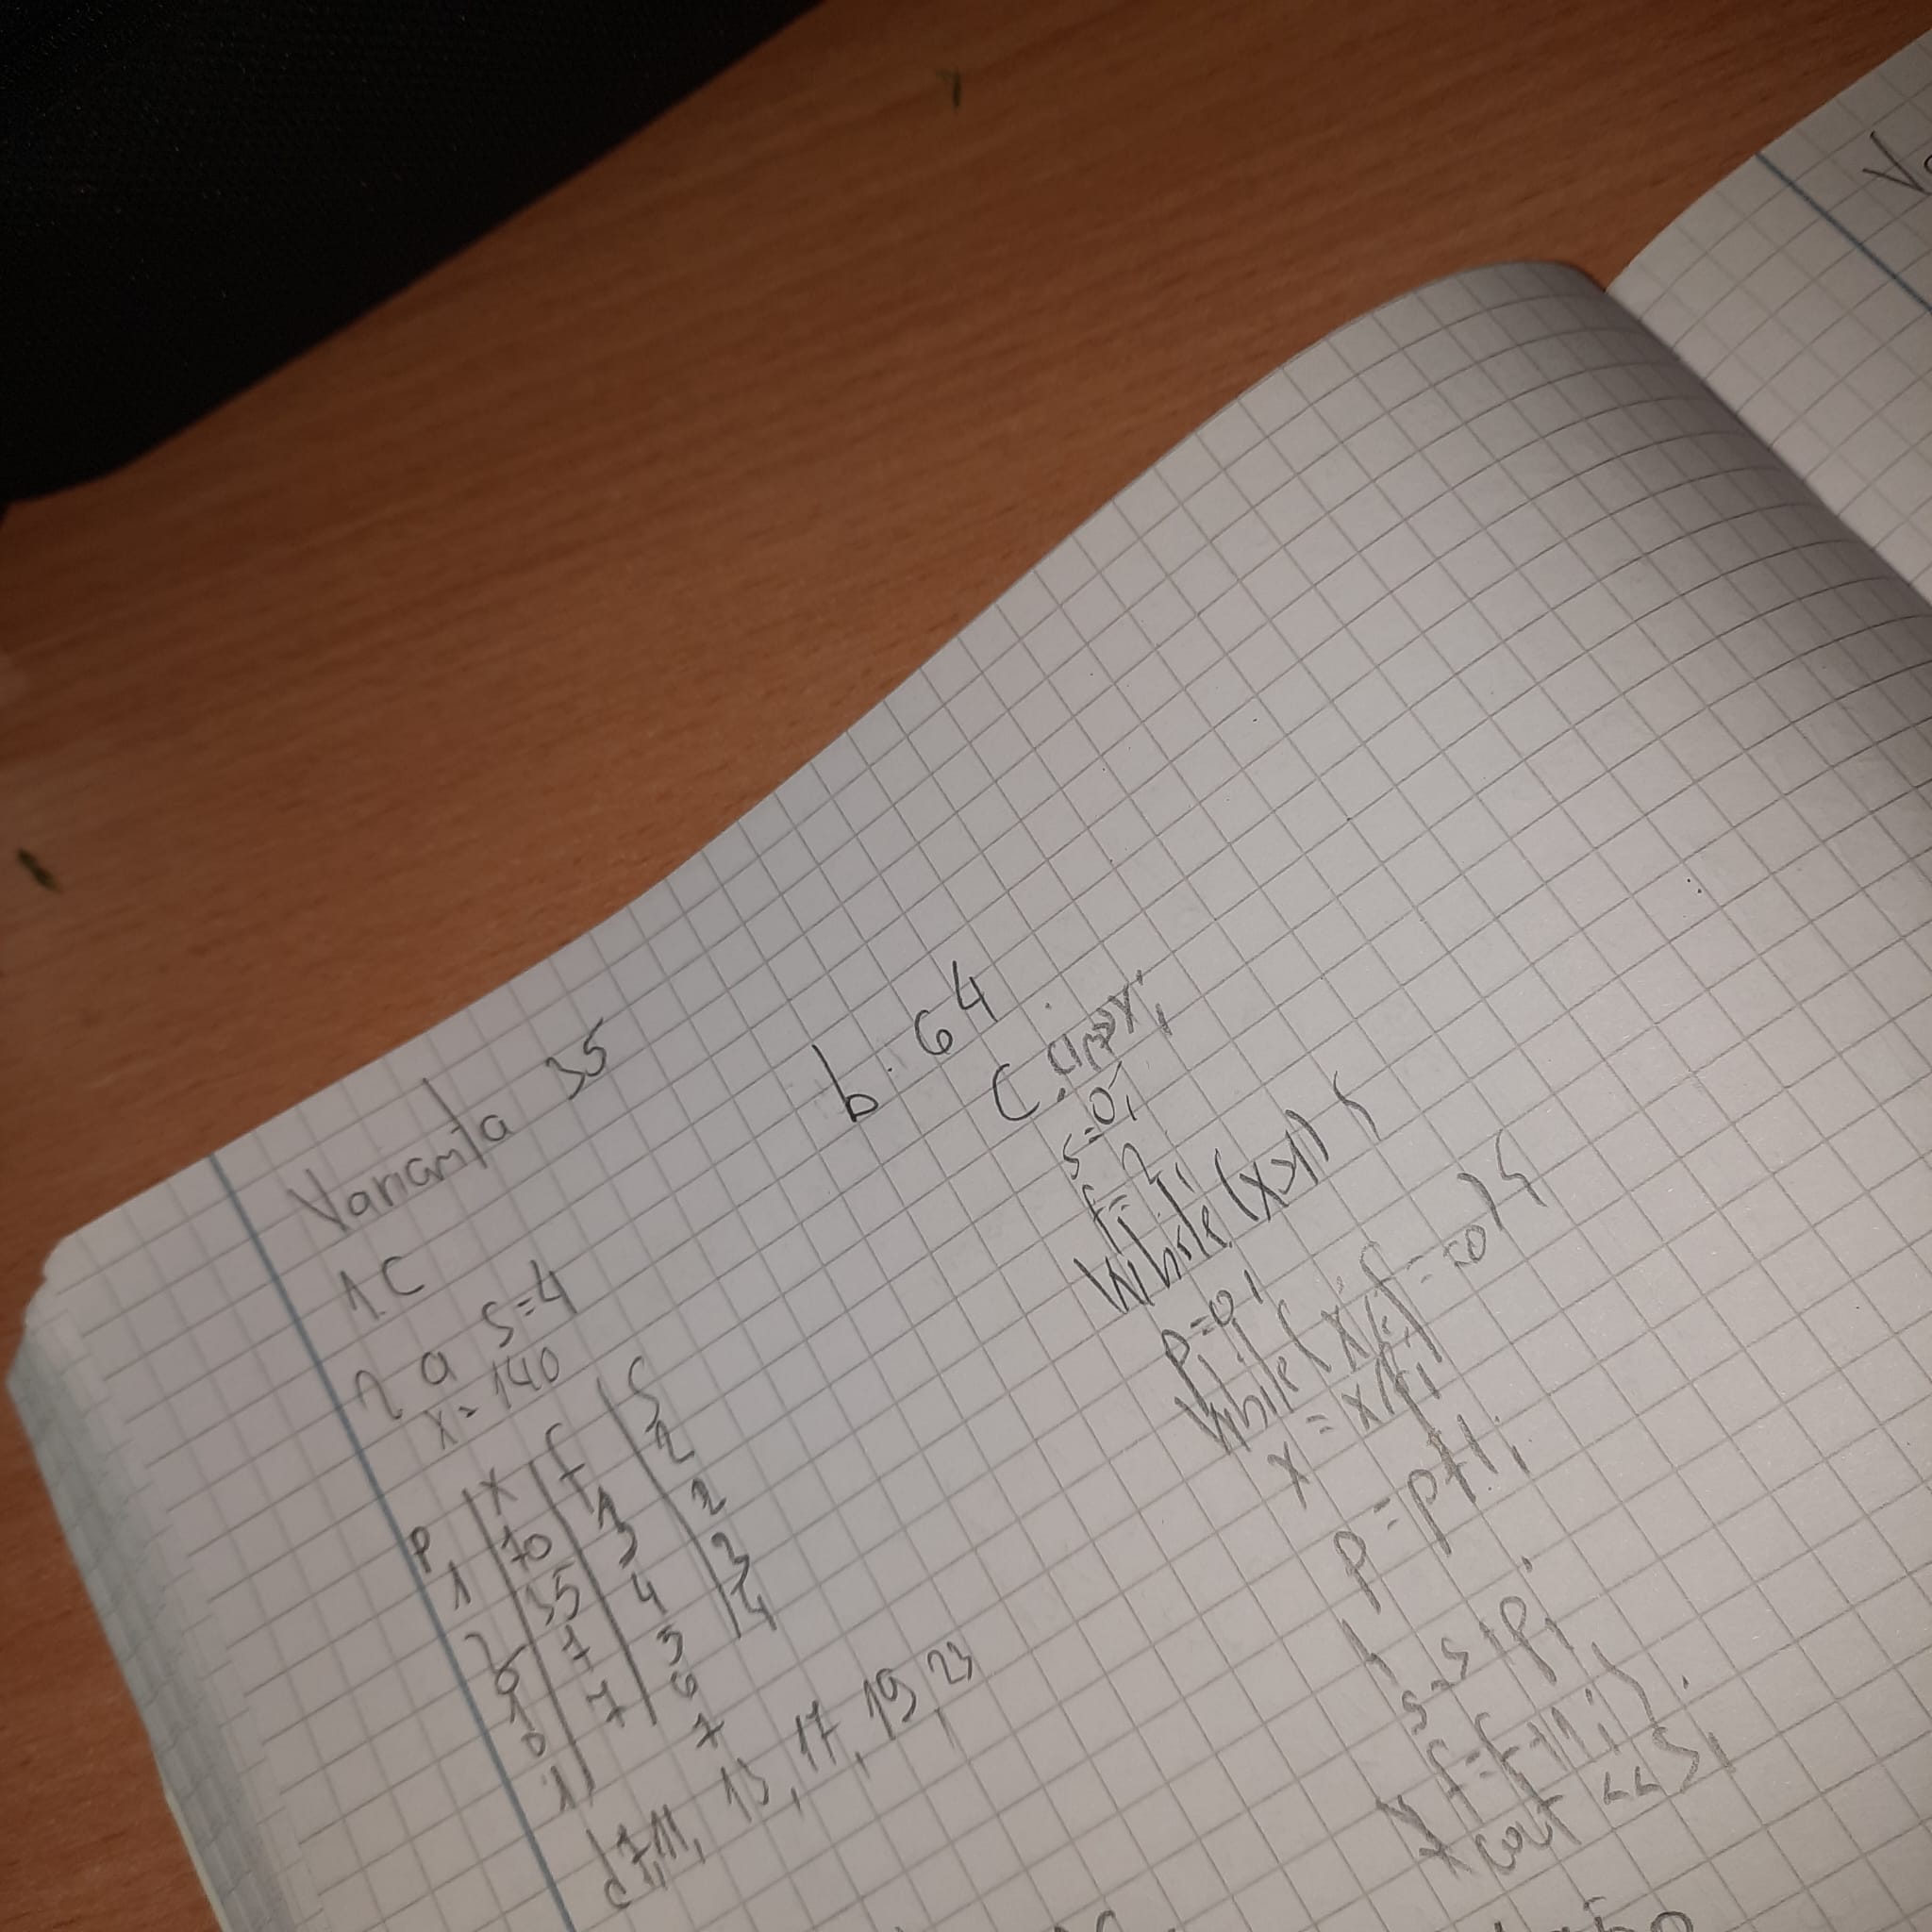 Varianta 35
1. C
2 a S=4
x=140
P x f S
1 70 2 2
2 35 3 2
0 7 4 3
1 7 5 4
0 6
1 7
d 7,11, 13, 17, 19, 23
b. 64
C. cin>>x;
s=0;
f=2;
while (x>1) {
p=0;
while (x%f==0) {
x=x/f;
p=p+1;
}
s=s+p;
f=f+1; }
cout <<s;